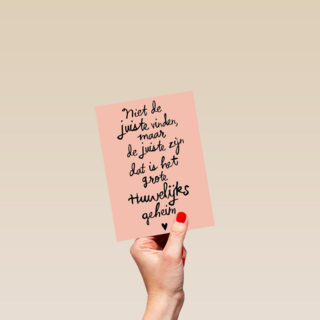 "Niet de
juiste vinden,
maar
de juiste zijn
dat is het
grote
Huwelijks
geheim